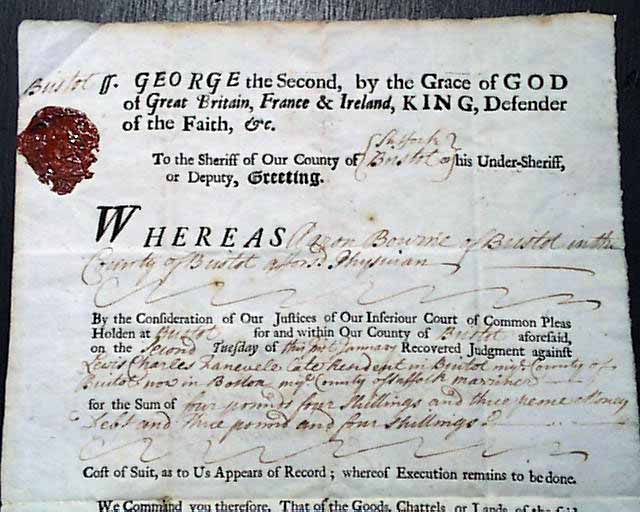 Bristol ss. GEORGE the Second, by the Grace of GOD
of Great Britain, France & Ireland, KING, Defender
of the Faith, &c.
Suffolk
To the Sheriff of Our County of Bristol or his Under-Sheriff,
or Deputy, Greeting.
WHEREAS Aaron Bourne of Bristol in the
County of Bristol afforsd. Physician
By the Consideration of Our Justices of Our Inferiour Court of Common Pleas
Holden at Bristol for and within Our County of Bristol aforesaid,
on the Second Tuesday of this Inst. January Recovered Judgment against
Lewis Charles Late Resident in Bristol in ye County of
Bristol now in Boston in ye County of Suffolk marriner
for the Sum of four pounds four shillings and three pence Money
Debt and three pound and four shillings
Cost of Suit, as to Us Appears of Record; whereof Execution remains to be done.
We Command you therefore, That of the Goods, Chattels or Lands, of the said